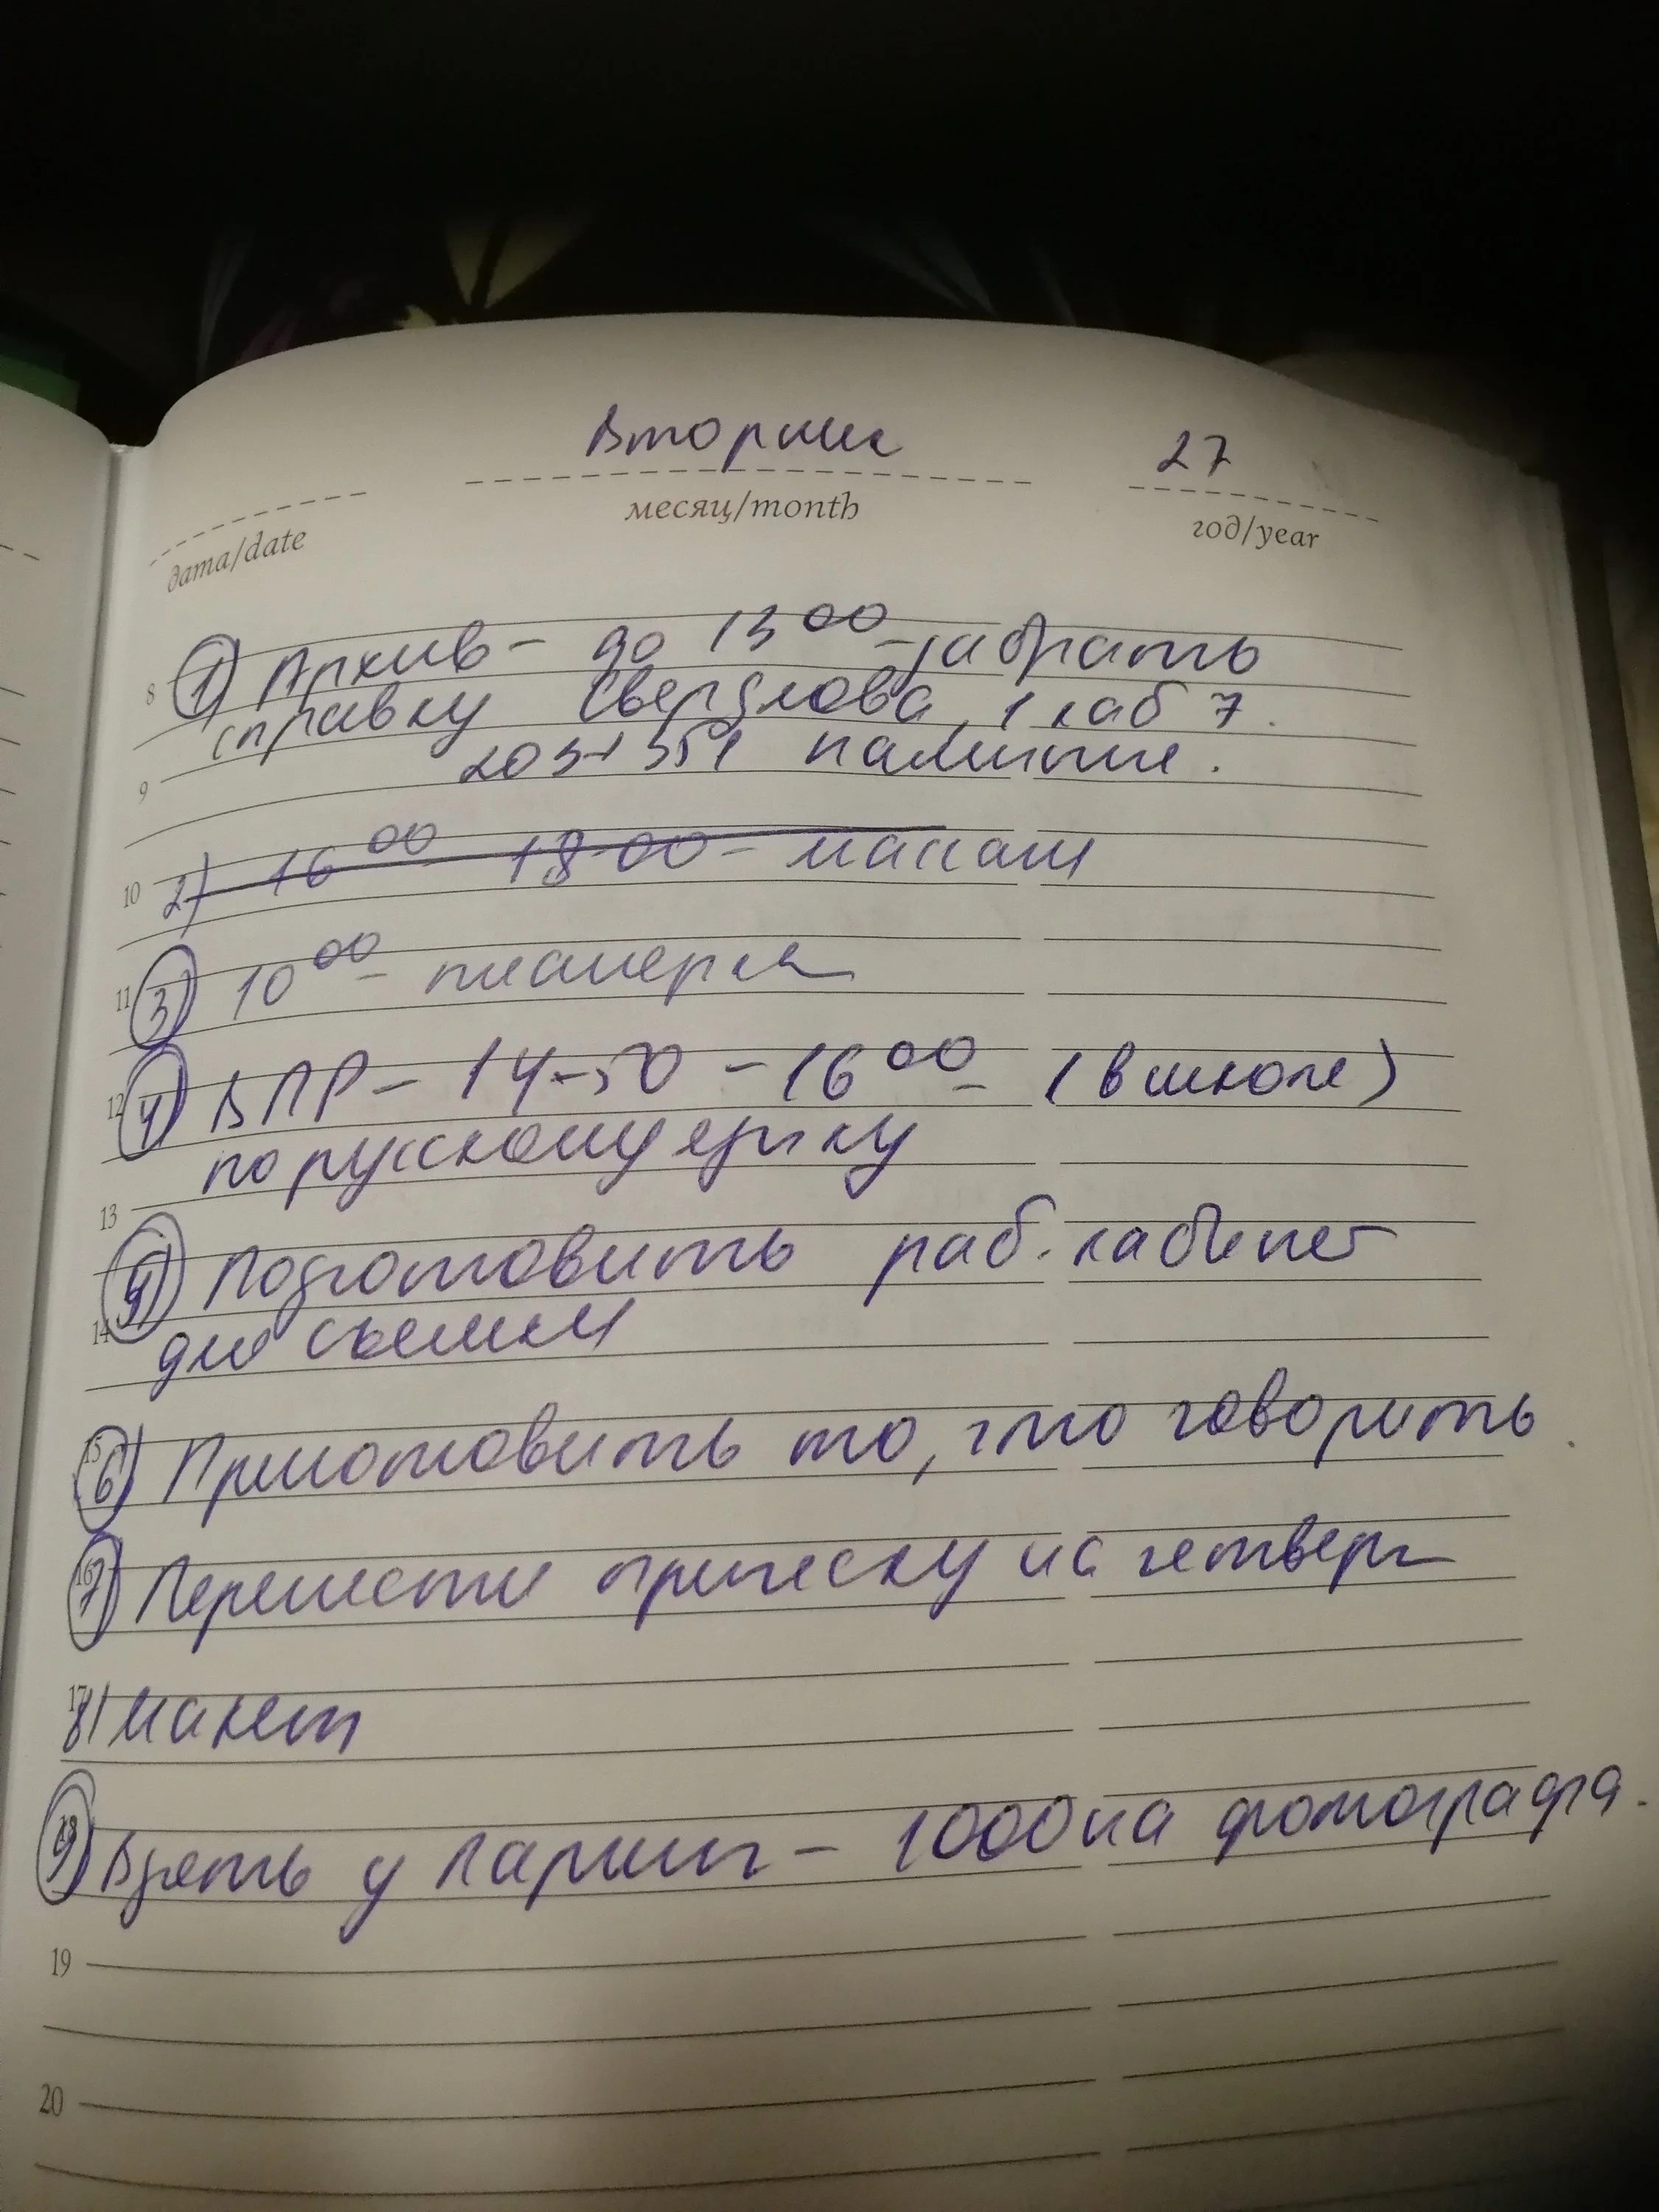 Вторник 27
дата/date месяц/month год/year
1) Архив - до 13 00 - забрать
8
справку Свердлова, 1 каб 7.
наличие.
9
2) 16 00 18-00 -
10
3) 10 00 - планерка
11
4) ВПР - 14-50 - 16 00 - (в школе)
12
по русскому языку
13
5) Подготовить раб. кабинет
14
для съемки
6) Приготовить то, что говорить.
15
7) Перенести прическу на четверг
16
17
8) Макет
9) Взять у Ларисы - 1000 на фотографа.
18
19
20